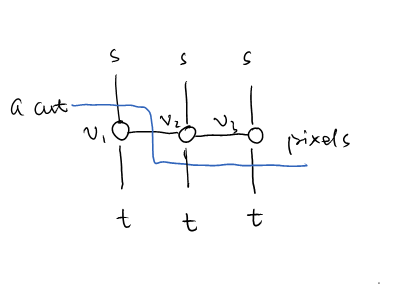 s s s
a cut
v₁ v₂ v₃
pixels
t t t